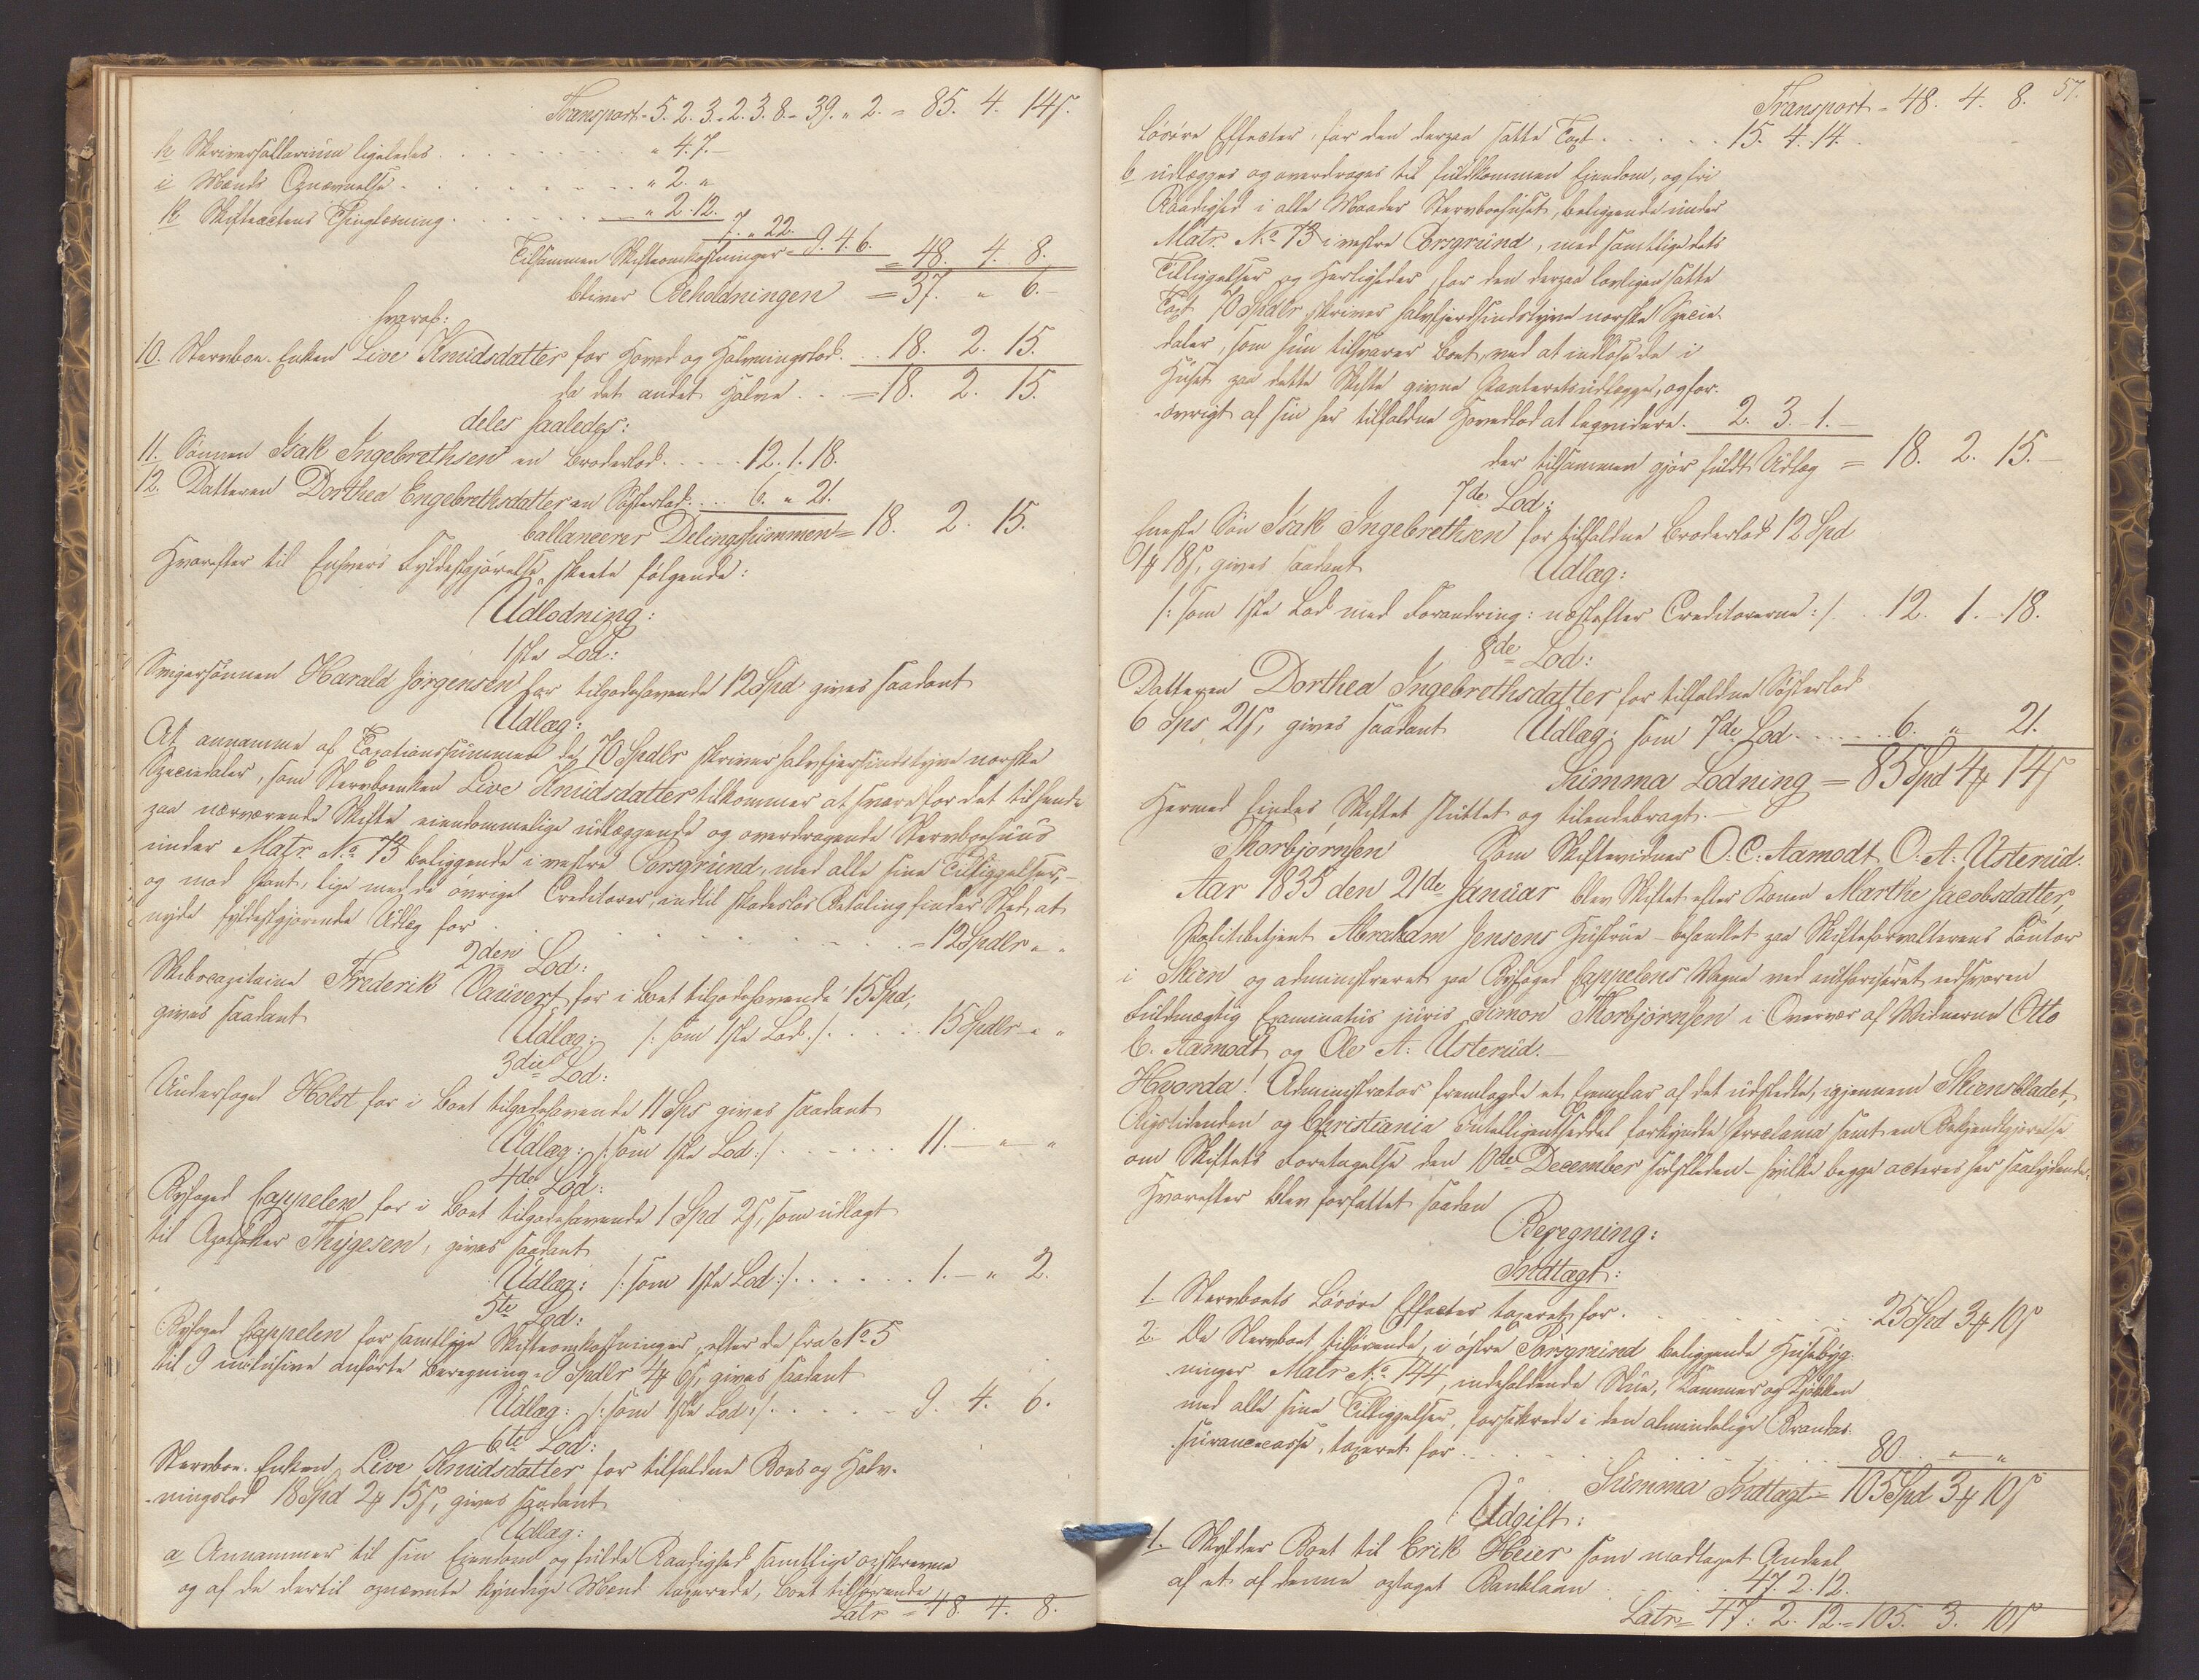 Transport = 5. 2. 3. = 2. 3. 8. = 39. " 2. = 85. 4. 14ſ.
h Skriversallarium ligeledes . . . " 4. 7. –
i Mænds Opnævnelse . . . " 2. "
k Skifteactens Tinglæsning . . . " 2. 12.
7. " 22.
Tilsammen Skifteomkostninger = 9. 4. 6. = 48. 4. 8.
bliver Beholdningen = 37. " 6. –
hvoraf:
10. Stervboe-Enken Live Knudsdatter for Hoved og Halvningslod. . . 18. 2. 15.
da det andet Halve . . = 18. 2. 15.
deles saaledes:
11. Sønnen Isak Ingebrethsen en Broderlod. . . . . 12. 1. 18.
12. Datteren Dorthea Engebrethsdatter en Søsterlod. . . . 6. " 21.
ballancerer Delingssummen = 18. 2. 15.
Hvorefter til Enhvers Fyldestgjørelse skeete følgende:
Udlodning:
1ste Lod:
Svigersønnen Harald Jørgensen for tilgodehavende 12 Spd gives saadant
Udlæg:
At annamme af Taxationssummen de 70 Spdlr skriver halvfjersindstyve norske
Speciedaler, som Stervboenken Live Knudsdatter tilkommer at svare for det til hende
paa nærværende Skifte eiendommelige udlæggende og overdragende Stervboehuus
under Matr. No 73 beliggende i vestre Porsgrund, med alle sine Tilliggelser, –
og mod Pant, lige med de øvrige Creditorer, indtil skadesløs Betaling finder Sted, at
nyde fyldestgjørende Udlæg for . . . = 12 Spdlr " "
2den Lod:
Skibscapitaine Frederik Vauvert for i Boet tilgodehavende 15 Spd,
gives saadant
Udlæg: /: som 1ste Lod :/. . . . 15 Spdlr " "
3die Lod:
Underfoged Holst for i Boet tilgodehavende 11 Sps gives saadant
Udlæg: /: som 1ste Lod :/ . . . . . 11. – " – "
4de Lod:
Byfoged Cappelen for i Boet tilgodehavende 1 Spd 2ſ, som udlagt
til Apotheker Thygesen, gives saadant
Udlæg: /: som 1ste Lod :/. . . . . . 1. – " 2.
5te Lod:
Byfoged Cappelen for samtlige Skifteomkostninger, efter de fra No 5
til 9 inclusive anførte Beregning = 9 Spdlr 4 # 6ſ, gives saadant
Udlæg: /: som 1ste Lod :/. . . . . 9. 4. 6.
6te Lod:
Stervboe-Enken, Live Knudsdatter for tilfaldne Boes og Halv-
ningslod 18 Spd 2 # 15ſ, gives saadant
Udlæg:
a Annammer til sin Eiendom og fulde Raadighed samtlige opskrevne
og af de dertil opnævnte kyndige Mænd taxerede, Boet tilhørende
Latr = 48 4. 8.
57.
Transport = 48. 4. 8.
Løsøre Effecter, for den derpaa satte Taxt . . . . . 15. 4. 14.
b udlægges og overdrages til fuldkommen Eiendom, og fri
Raadighed i alle Maader Stervboehuset, beliggende under
Matr. No 73 i vestre Porsgrund, med samtlige dets
Tilliggelser og Herligheder, for den derpaa lovligen satte
Taxt 70 Spdlr skriver halvfjerdsindstyve norske Specie-
daler, som hun tilsvarer Boet, ved at indløse de i
Huset paa dette Skifte givne Panteretsudlægge, og for-
øvrigt af sin her tilfaldne Hovedlod at leqvidere. 2. 3. 1. –
der tilsammen gjør fuldt Udlæg = 18. 2. 15. –
7de Lod:
Eneste Søn Isak Ingebrethsen for tilfaldne Broderlod 12 Spd
1 # 18ſ, gives saadant
Udlæg:
/: som 1ste Lod med Forandring: næstefter Creditorerne :/. . . 12. 1. – 18.
8de Lod:
Datteren Dorthea Ingebrethsdatter for tilfaldne Søsterlod
6 Sps 21ſ, gives saadant Udlæg: som 7de Lod . . . . . . 6. " 21.
Summa Lodning = 85 Spd 4 # 14ſ
Hermed Endes Skiftet sluttet og tilendebragt. –
Thorbjørnsen Som Skiftevidner O. C. Aamodt O. A. Usterud.
Aar 1835 den 21de Januar blev Skiftet efter Konen Marthe Jacobsdatter
Politibetjent Abraham Jensens Hustrue – behandlet paa Skifteforvalterens Contor
i Skien og administreret paa Byfoged Cappelens Vegne ved authoriseret edsvoren
Fuldmægtig Examinatus juris Simon Thorbjørnsen i Overvær af Vidnerne Otto
C. Aamodt og Ole A. Usterud. –
Hvorda! Administrator fremlagde et Exemplar af det udstedte, igjennem Skiensbladet,
Rigstidenden og Christiania Intelligentseddel forkyndte Proclama samt en Bekjendtgjørelse
om Skiftets Foretagelse den 10de December sidstleden – hvilke begge acteres her saalydende.
Hvorefter blev forfattet saadan
Beregning:
Indtægt:
1. Stervboets Løsøre Effecter taxeret for . . . 25 Spd 3 # 10ſ
2. De Stervboet tilhørende i østre Porsgrund beliggende Huusebyg-
ninger Matr. No 144, indeholdende Stue, Kammer og Kjøkken
med alle sine Tilliggelser, forsikrede i den almindelige Brandas-
surancecasse, taxeret for . . . 80 " – "
Summa Indtægt = 105 Spd 3 # 10ſ
Udgift:
1. Skylder Boet til Erik Heier som modtaget Andeel
af et af denne optaget Banklaan . . . 47. 2. 12.
Latr = 47: 2. 12. = 105. 3. 10ſ